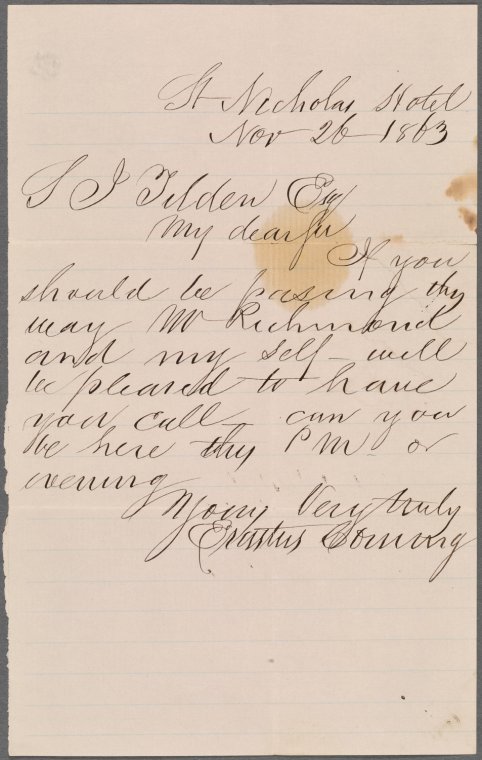 St Nicholas Hotel
Nov 26 1863
S J Tilden Esq
My dear Sir
If you
should be passing this
way Mr Richmond
and my self - will
be pleased to have
you call - can you
be here this P M - or
evening
Yours Very truly
Erastus Corning